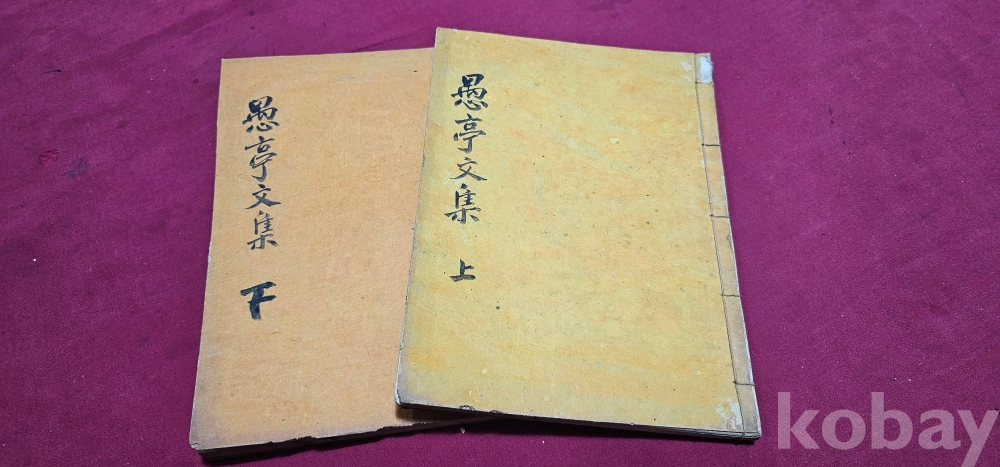 愚亭文集
上
愚亭文集
下
kobay